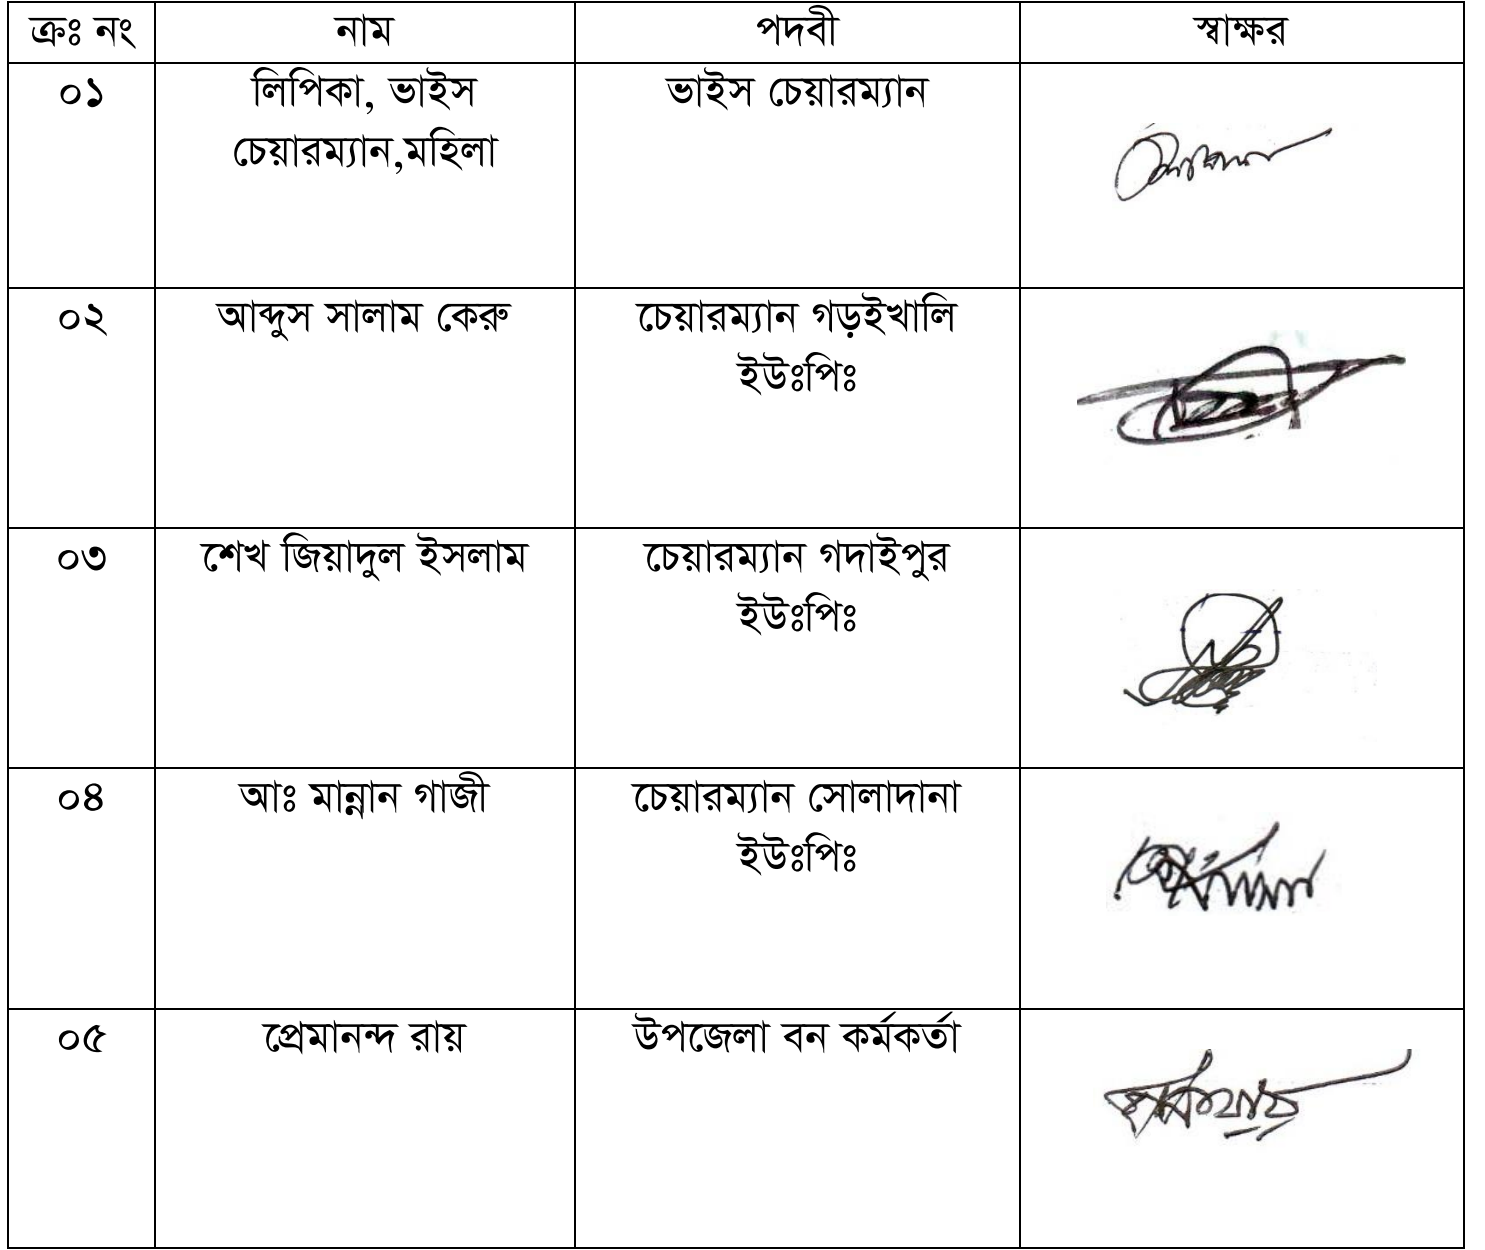 ক্রঃ নং নাম পদবী স্বাক্ষর
০১ লিপিকা, ভাইস ভাইস চেয়ারম্যান
চেয়ারম্যান,মহিলা
০২ আব্দুস সালাম কেরু চেয়ারম্যান গড়ইখালি
ইউঃপিঃ
০৩ শেখ জিয়াদুল ইসলাম চেয়ারম্যান গদাইপুর
ইউঃপিঃ
০৪ আঃ মান্নান গাজী চেয়ারম্যান সোলাদানা
ইউঃপিঃ
০৫ প্রেমানন্দ রায় উপজেলা বন কর্মকর্তা